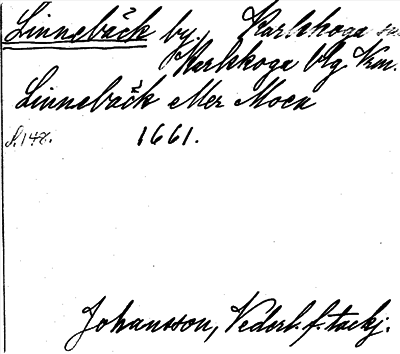 Linnebäck by., Karlskoga sn.
Karlskoga blg Vrm.
Linnebäck eller Moen
S. 148. 1661.
Johansson, Nederl. f. tackj.